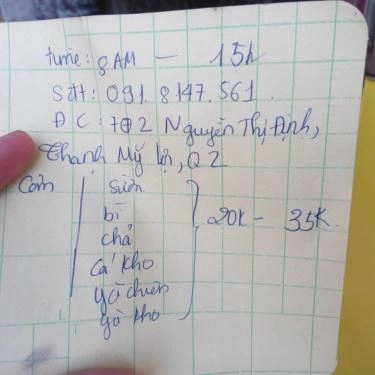 time: 8AM — 15h
Sđt: 091.8147.561
ĐC: 702 Nguyễn Thị Định,
Thạnh Mỹ Lợi, Q2
Cơm sườn
bì
chả
cá kho
gà chiên
gà kho
20k - 35k.